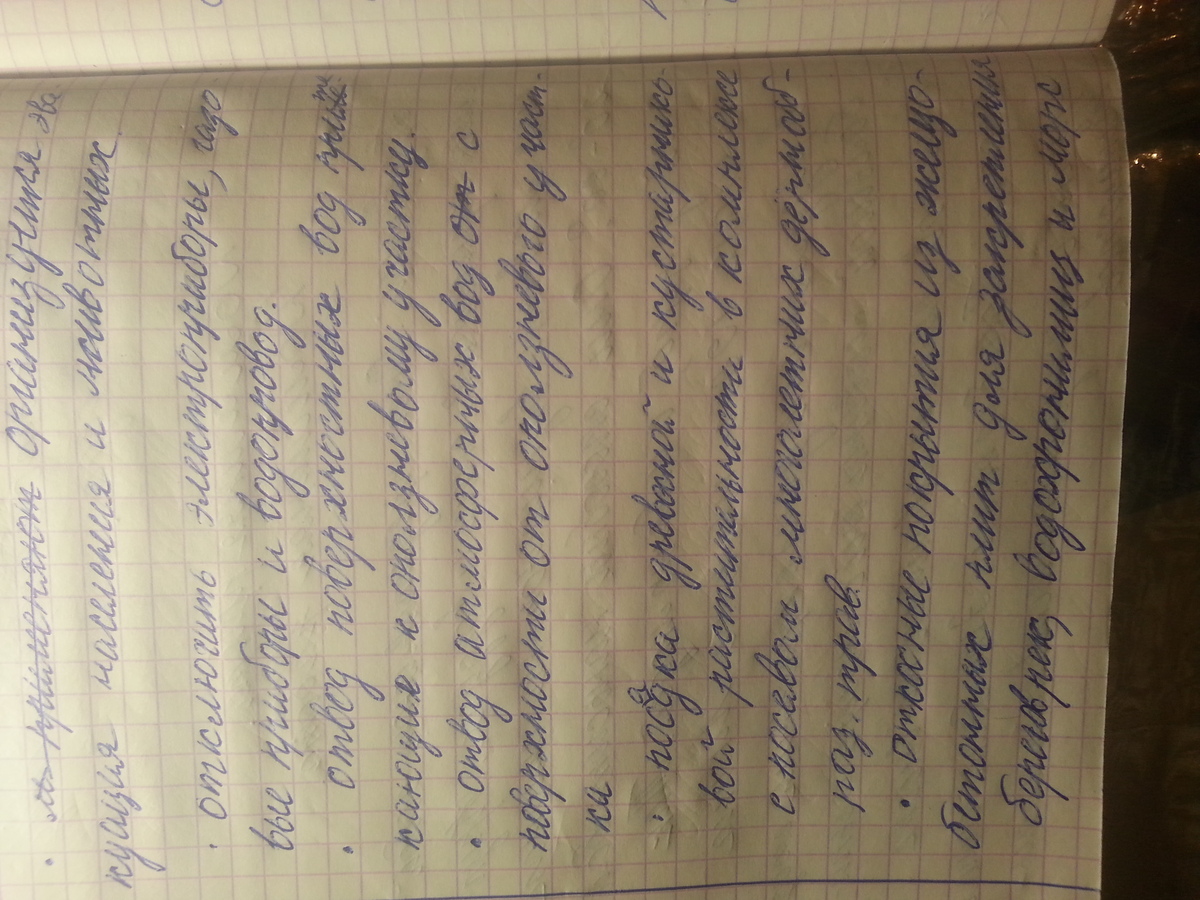 • применяют организуется эва
куация населения и животных
• отключить электроприборы, газо
вые приборы и водопровод.
• отвод поверхностных вод прите
кающих к оползневому участку.
• отвод атмосферных вод от с
поверхности от оползневого участ.
ка
• посадка древесной и кустарнико-
вой растительности в комплексе
с посевом многолетних дернооб-
раз. трав.
• откосные покрытия из железо-
бетонных плит для закрепления
берегов рек, водохранилищ и морж